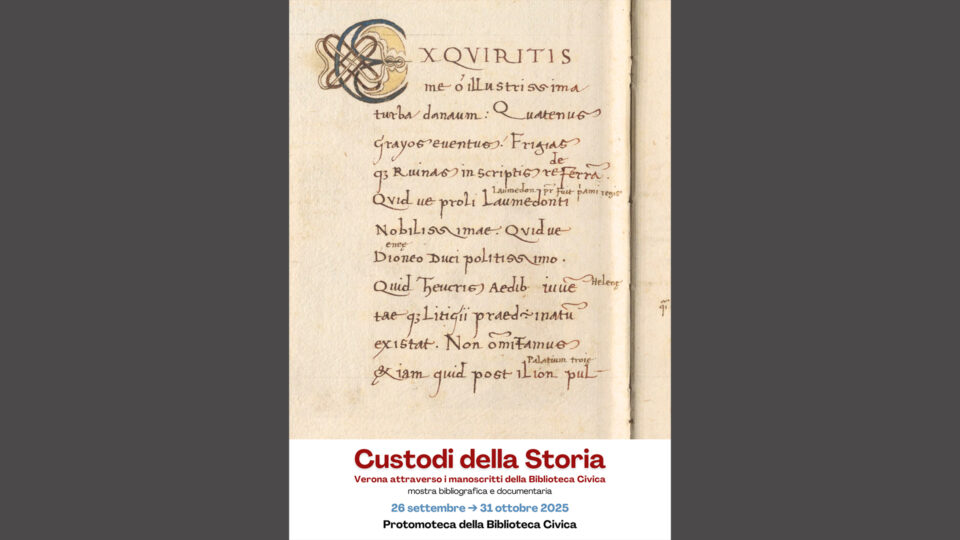 EXQVIRITIS
me o illustrissima
turba danaum : Quatenus
Grayos eventus. Frigias
de
qꝫ Ruinas in scriptis re Ferrā.
Laumedon pr̄ fuit p̄ami regis
Quid ve proli Laumedonti
Nobilissimae. Quidue
eneę
Dioneo Duci politissimo.
Quid Theucris Aedib iuue Helenę
tae qꝫ Litigii praedestinatū
existat. Non om̄itamus
Palatium troię
&iam quid post ilion pul-
Custodi della Storia
Verona attraverso i manoscritti della Biblioteca Civica
mostra bibliografica e documentaria
26 settembre → 31 ottobre 2025
Protomoteca della Biblioteca Civica